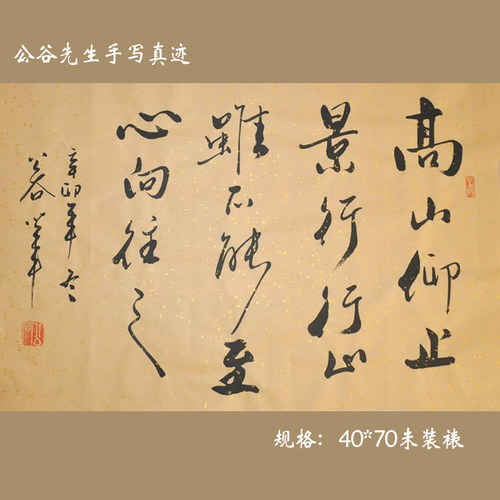 公谷先生手写真迹
髙山仰止
景行行止
雖不能至
心向往之
辛卯年冬
公谷筆
规格：40*70未装裱